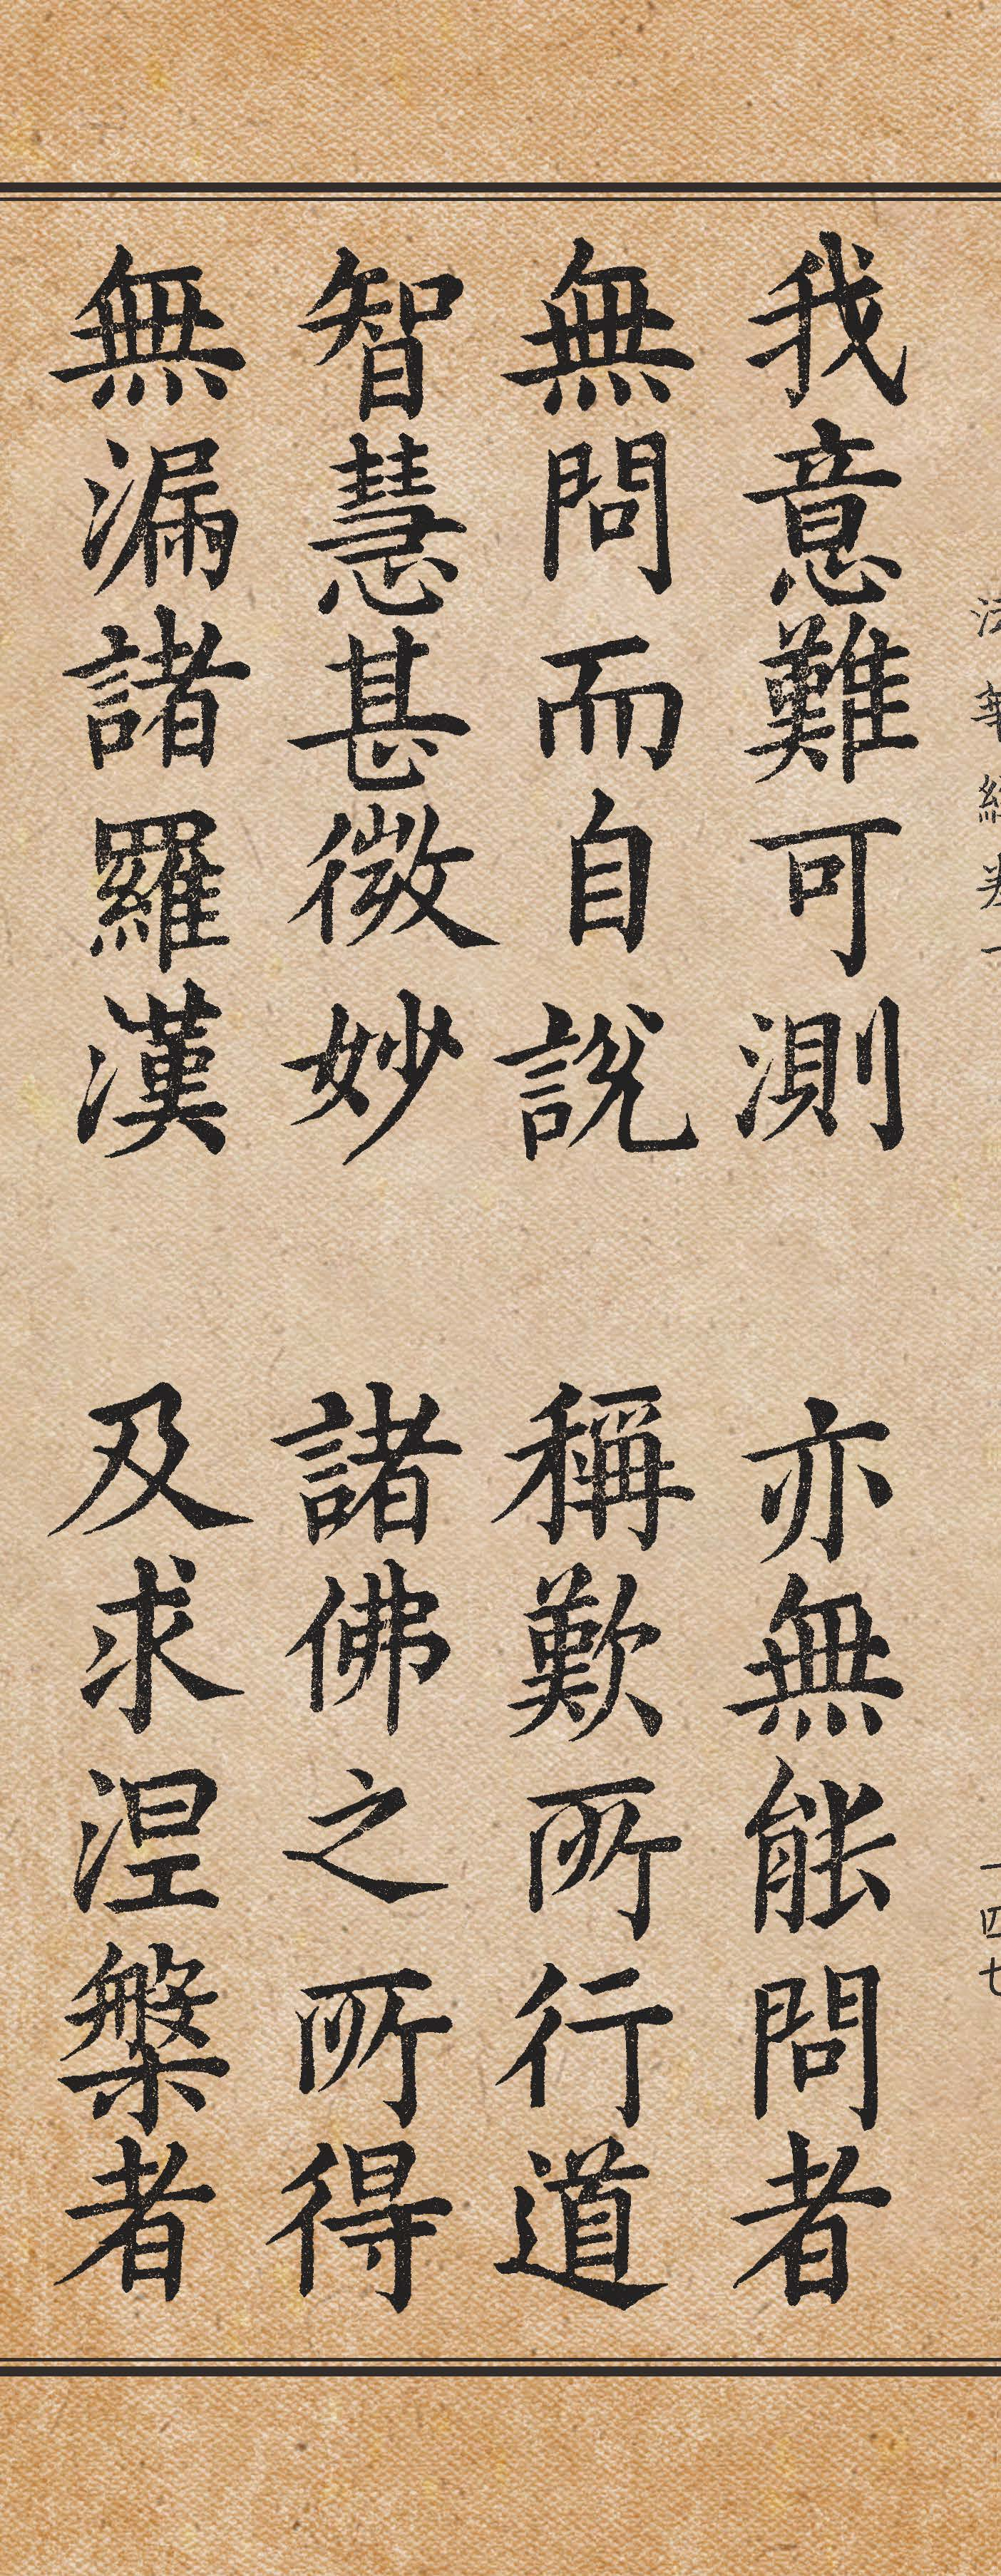 法華經卷一 一四七
我意難可測 亦無能問者
無問而自說 稱歎所行道
智慧甚微妙 諸佛之所得
無漏諸羅漢 及求涅槃者